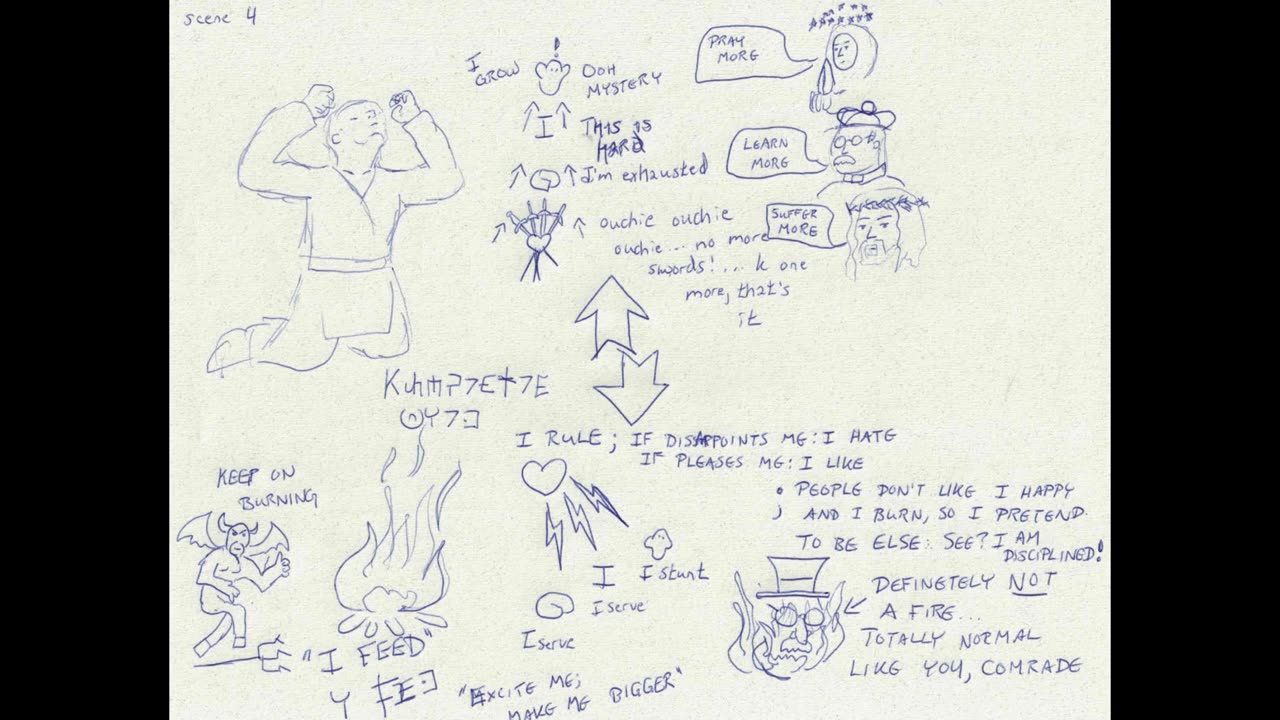 scene 4
I
GROW
OOH
MYSTERY
I
THIS IS
HARD
I'm exhausted
ouchie ouchie
ouchie... no more
swords!... k one
more, that's
it
PRAY
MORE
LEARN
MORE
SUFFER
MORE
I RULE; IF DISAPPOINTS ME: I HATE
IF PLEASES ME: I LIKE
PEOPLE DON'T LIKE I HAPPY
AND I BURN, SO I PRETEND
TO BE ELSE: SEE? I AM
DISCIPLINED!
KEEP ON
BURNING
I
I stunt
I serve
I serve
DEFINETELY NOT
A FIRE...
TOTALLY NORMAL
LIKE YOU, COMRADE
"I FEED"
"EXCITE ME;
MAKE ME BIGGER"